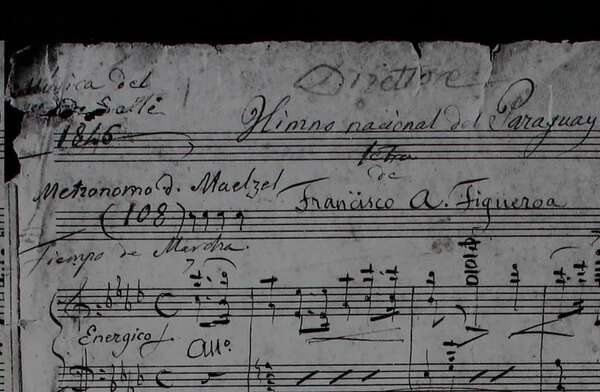 Direttore
Musica del
de Sallé
1846
Himno nacional del Paraguay
letra
de
Francisco A. Figueroa
Metronomo d. Maelzel
(108)
Tiempo de Marcha
Energico
All.º